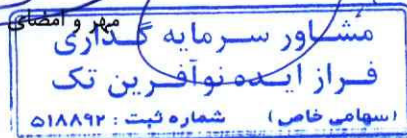 مهر و امضای
مشاور سرمایه گذاری
فراز ایده نوآفرین تک
(سهامی خاص) شماره ثبت : ۵۱۸۸۹۲